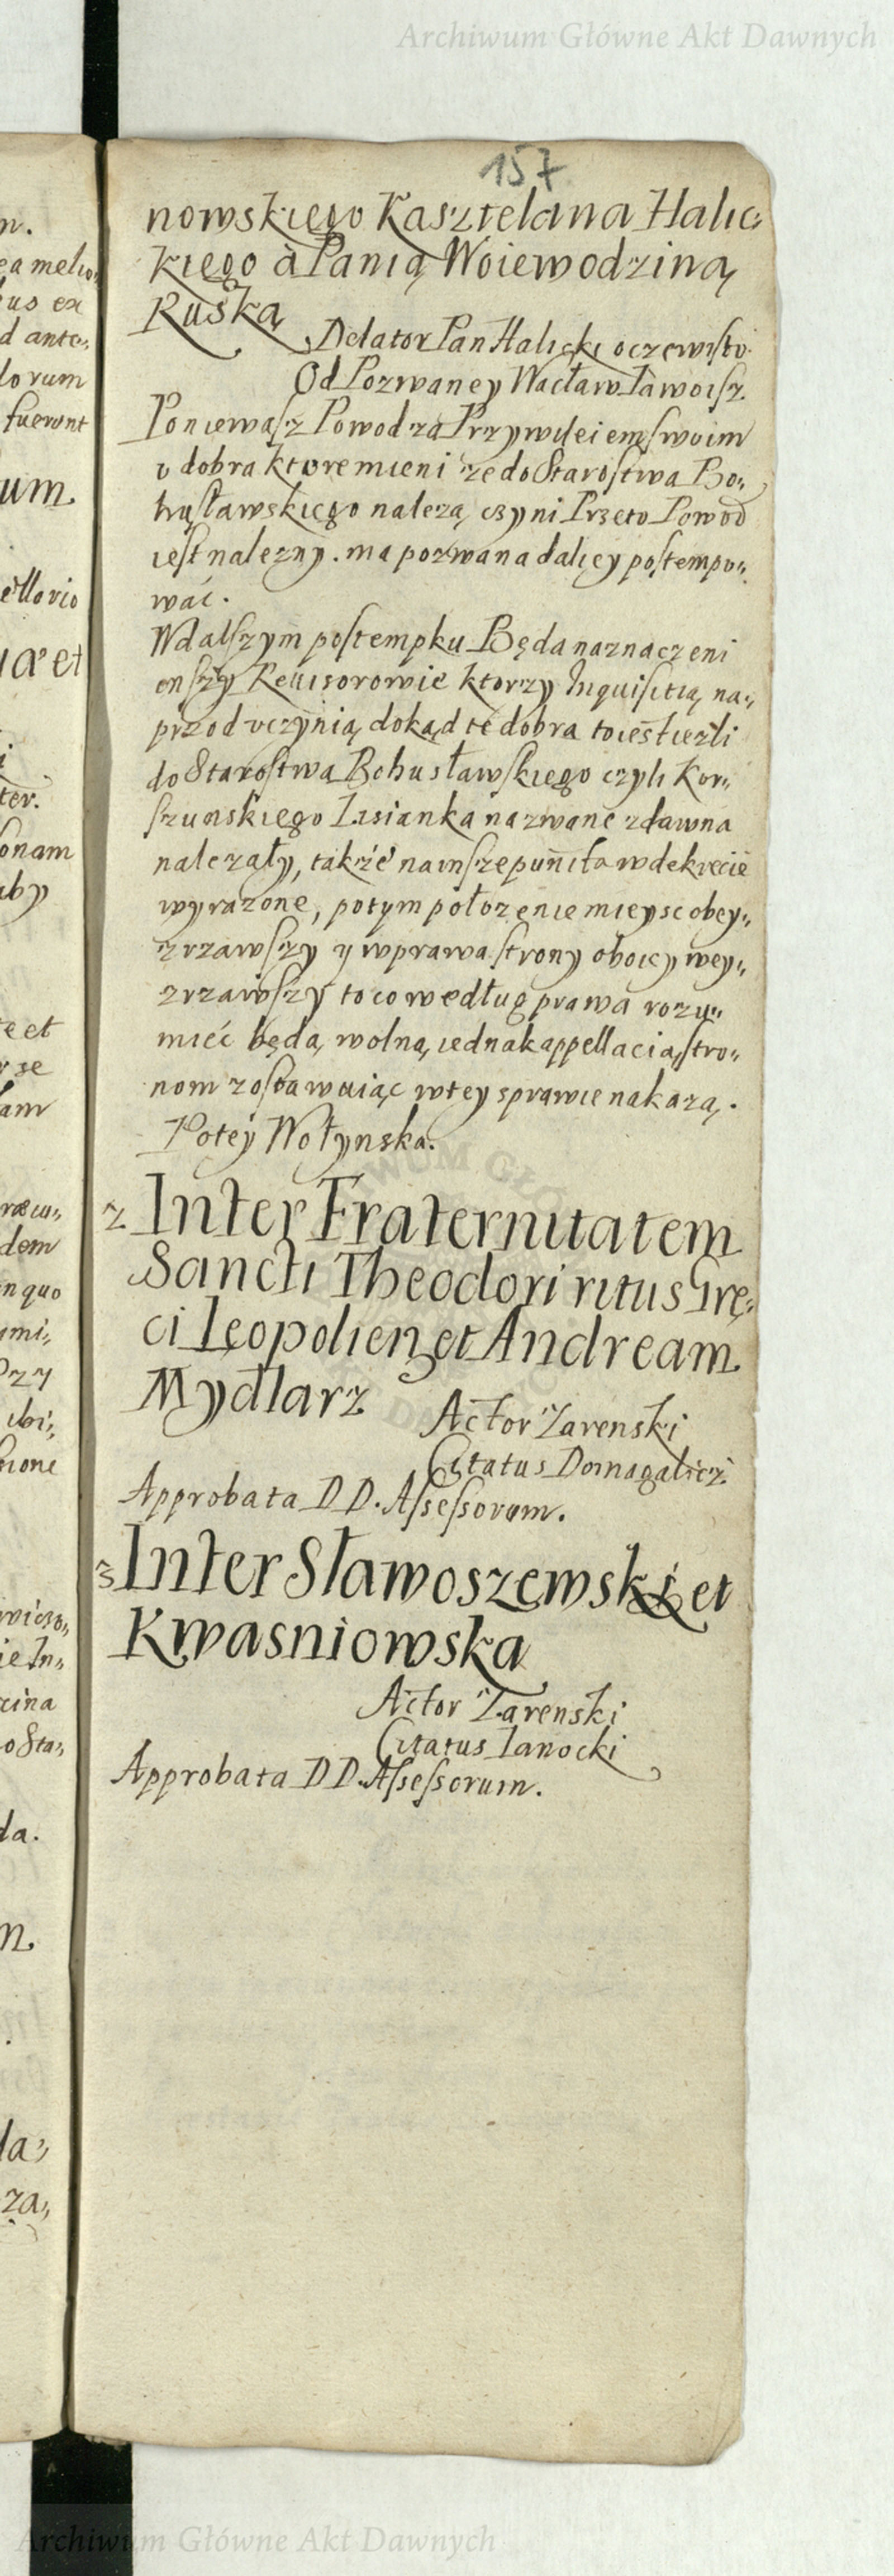 Archiwum Główne Akt Dawnych
157
nowskiego Kasztelana Halic„
kiego à Panią Woiewodziną
Ruską
Delator Pan Halicki oczewisto.
Od Pozwaney Wacław
Poniewasz Powod za Przywileiem swoim
o dobra ktore mieni że do Starostwa Bo„
husławskiego nalezą czyni Przeto Powod
iest nalezny. ma pozwana daliey postempo„
wać.
W dalszym postempku Będa naznaczeni
Reuisorowie ktorzy Inquisitią na„
przod vczynią, dokąd te dobra to iest iezli
do Starostwa Bohusławskiego czyli Kor„
szunskiego Lisianka nazwane zdawna
nalezały, także na insze puncta w dekrecie
wyrazone, potym połozenie mieysc obey„
zrzawszy y w prawa strony oboiey wey„
zrzawszy to co według prawa rozu„
mieć będą, wolną iednak appellacią stro„
nom zostawuiąc w tey sprawie nakazą.
Potey Wołynska.
2 Inter Fraternitatem
Sancti Theodori ritus Gre„
ci Leopolien et Andream
Mydlarz
Actor Zarenski
Citatus Domagalicz
Approbata D D. Assessorum.
3 Inter Sławoszewski et
Kwasniowska
Actor Zarenski
Citatus Ianocki
Approbata D D. Assessorum.
Archiwum Główne Akt Dawnych